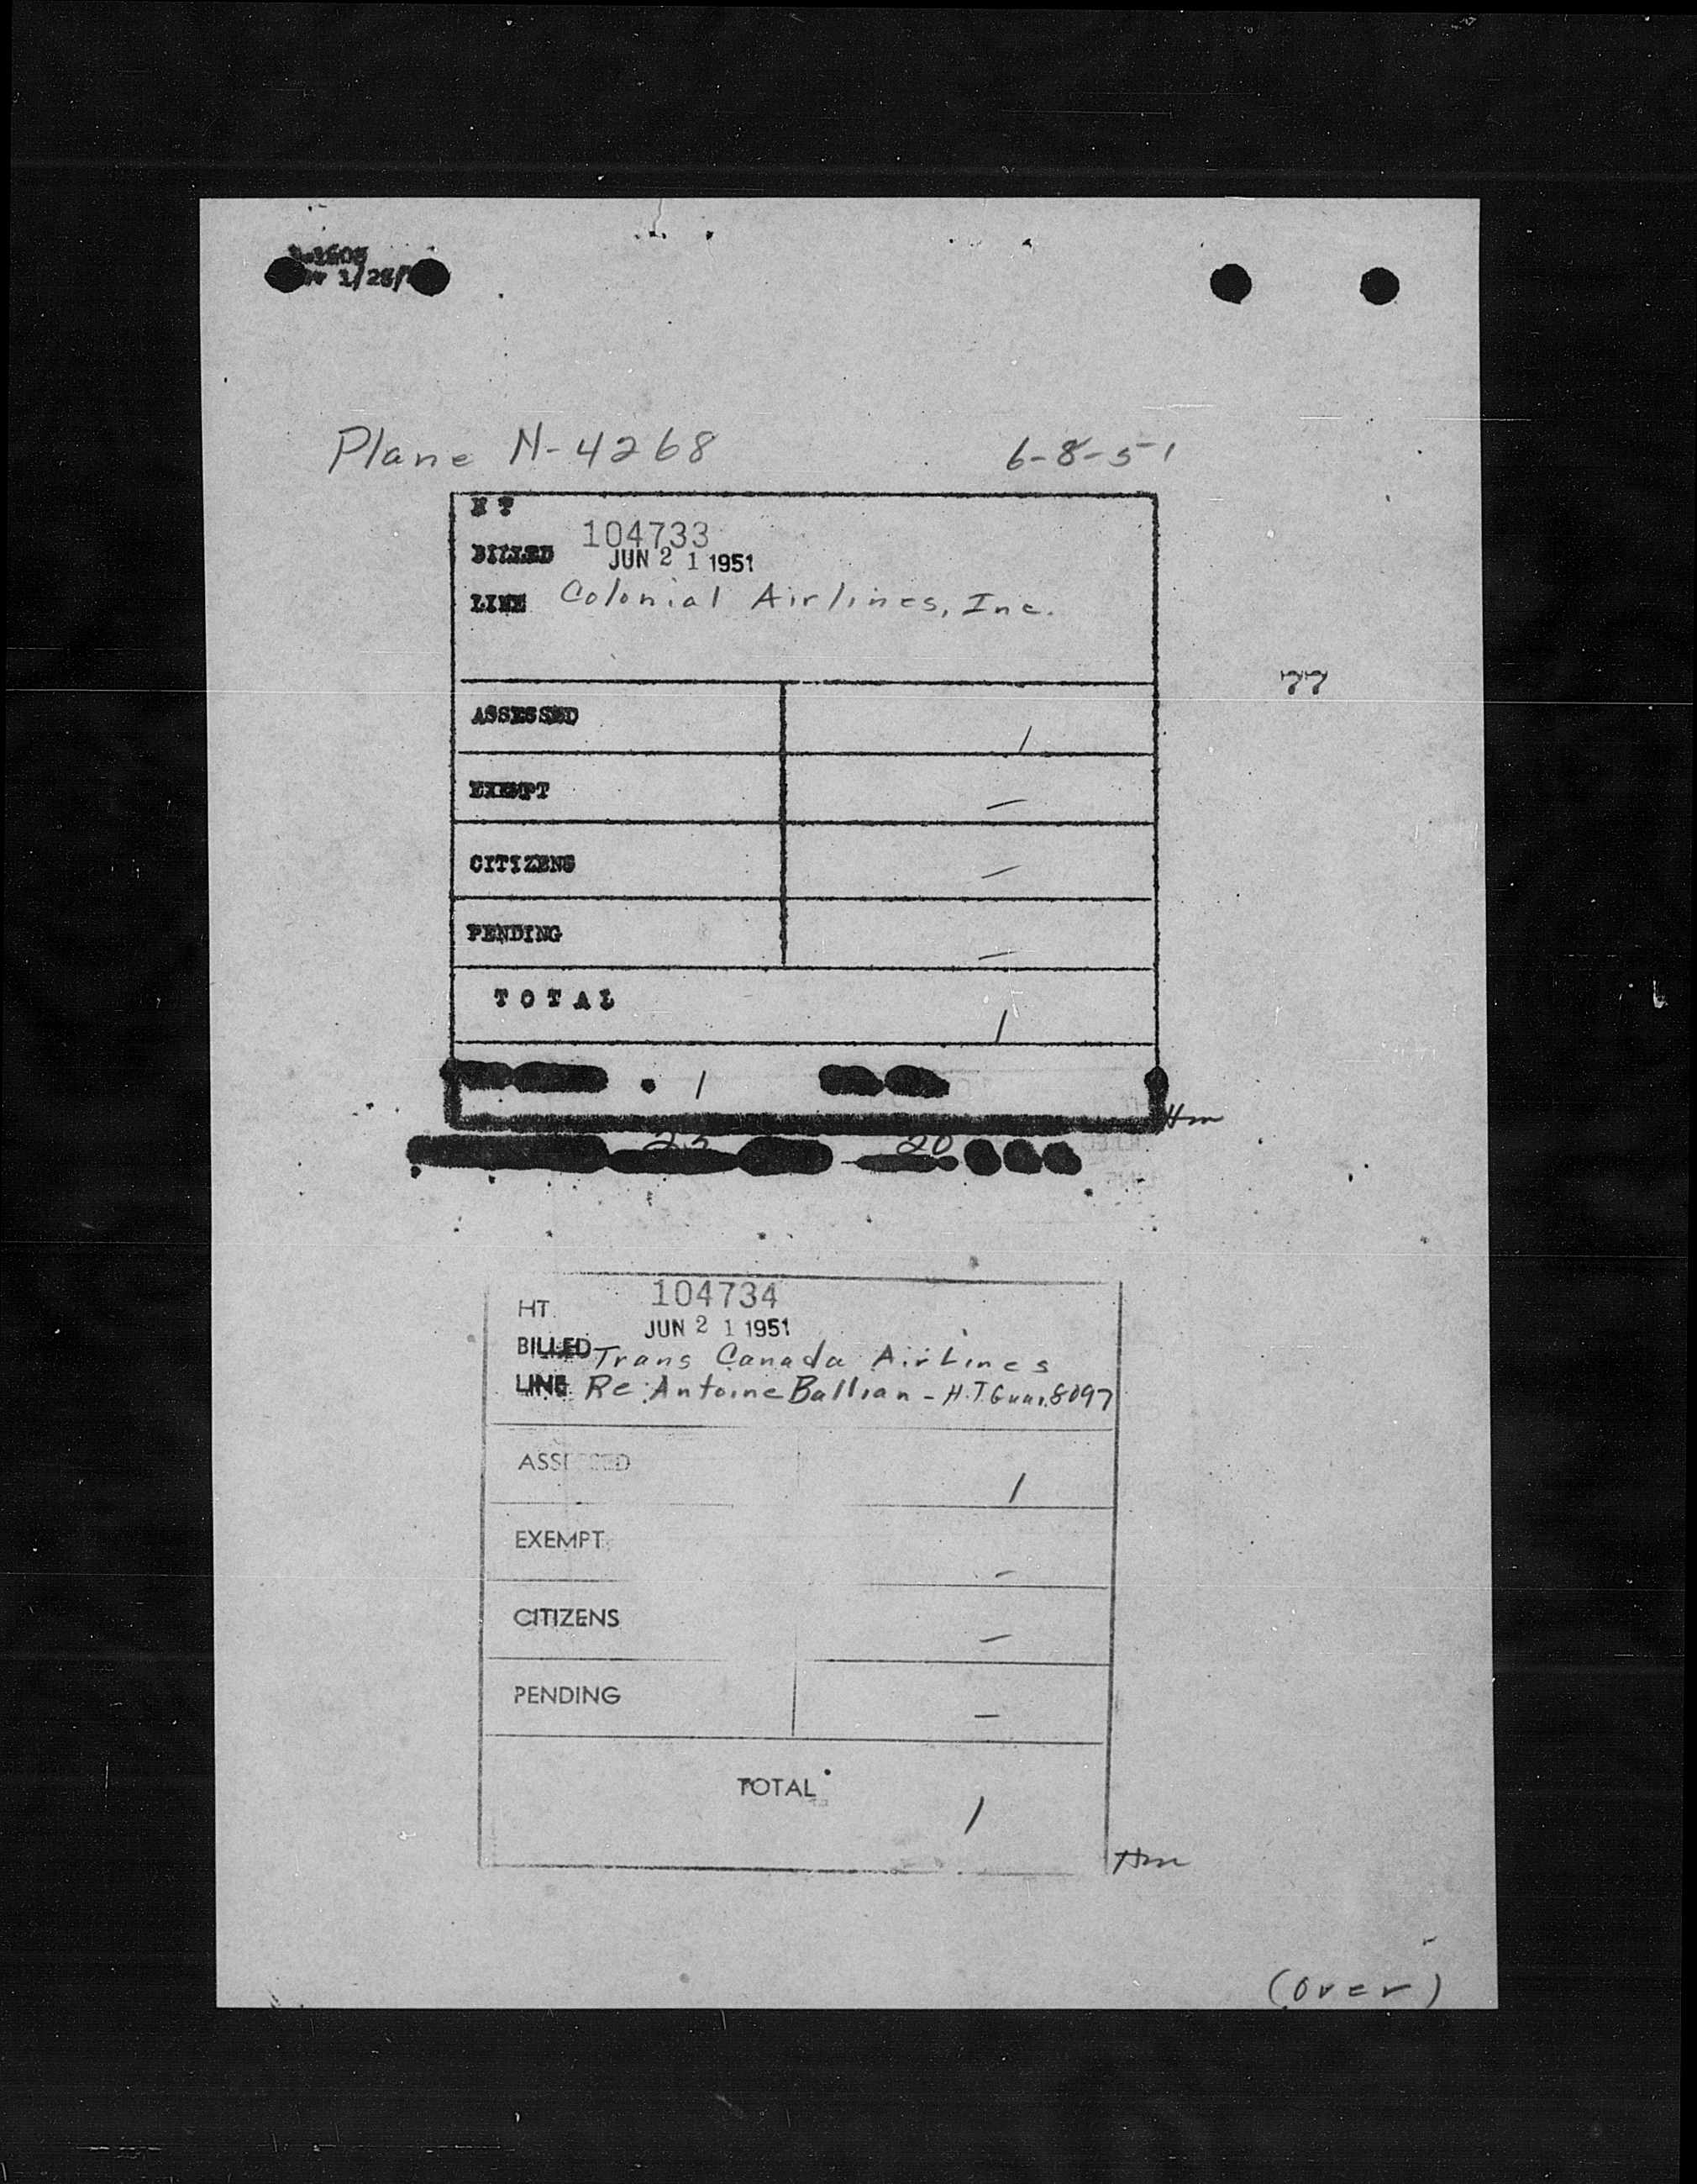 Plane N-4268 6-8-51
H T 104733
BILLED JUN 2 1 1951
LINE Colonial Airlines, Inc.
77
ASSESSED 1
EXEMPT —
CITIZENS —
PENDING —
TOTAL 1
1
Hm
25 20
HT. 104734
JUN 2 1 1951
BILLED Trans Canada AirLines
LINE Re: Antoine Ballian - H.T. Guar. 8097
ASSESSED 1
EXEMPT —
CITIZENS —
PENDING —
TOTAL 1
Hm
(over)